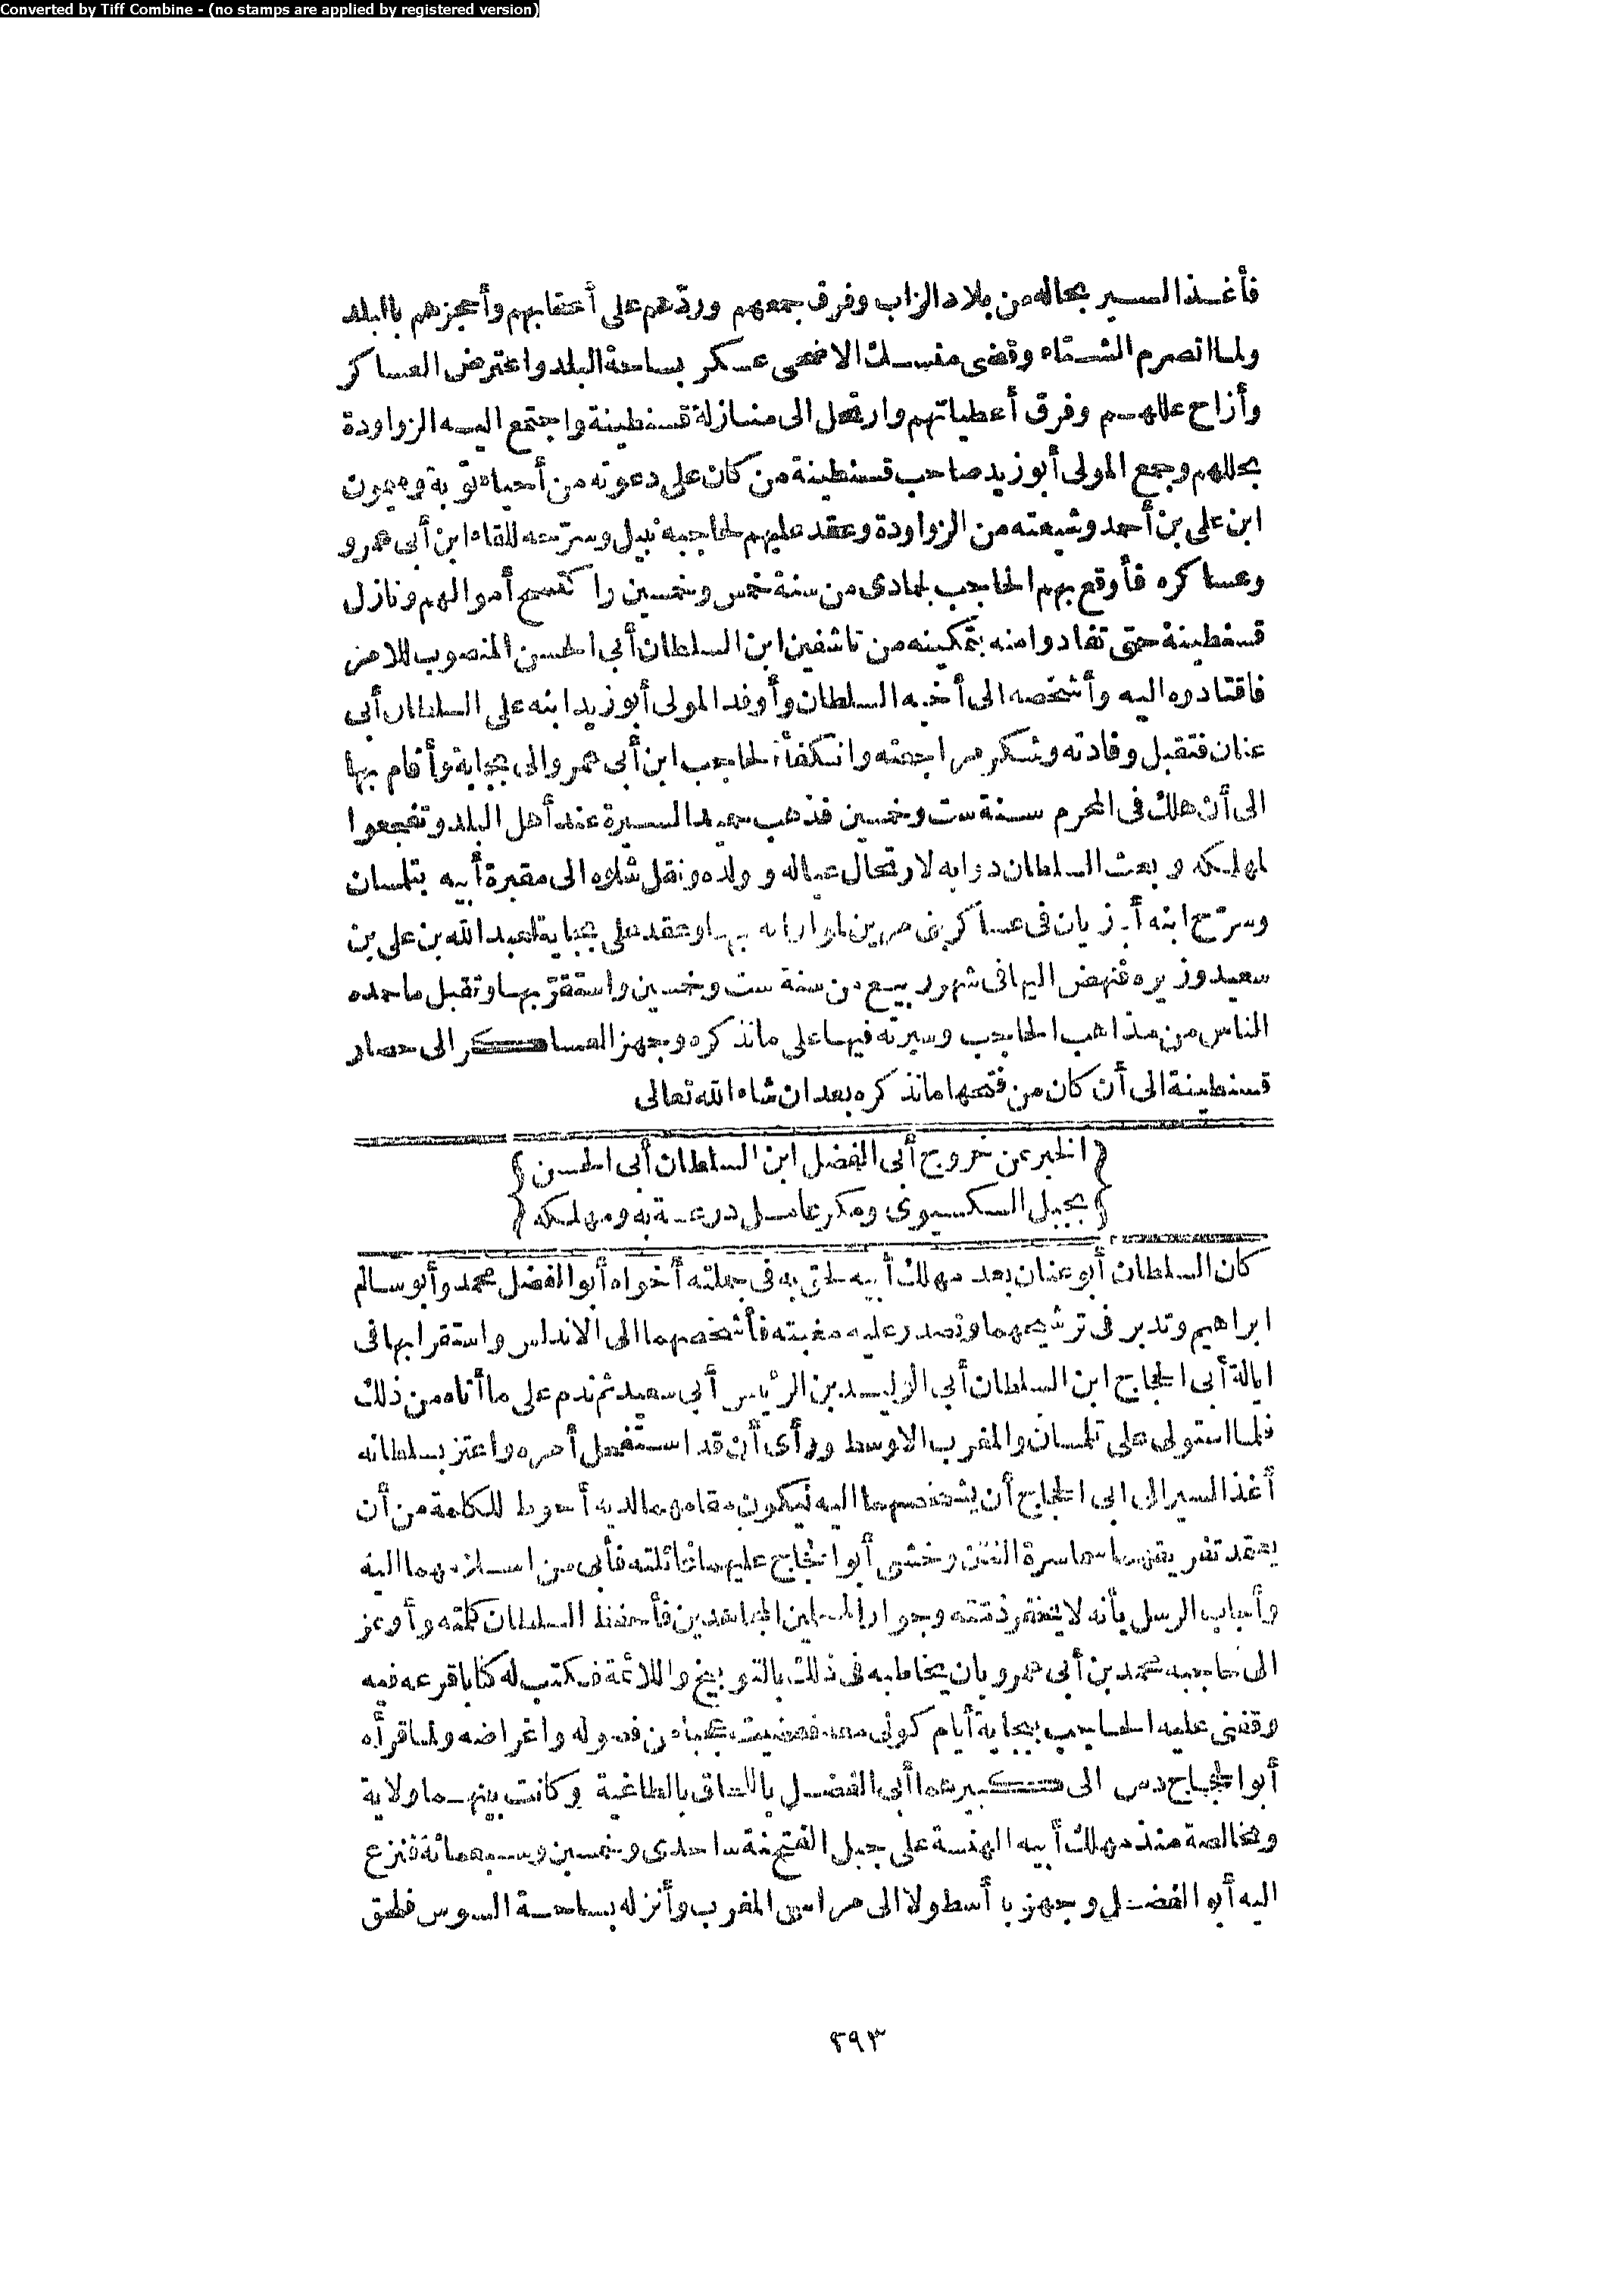 Converted by Tiff Combine - (no stamps are applied by registered version)
فأغذ السير بحاله من بلاد الزاب وفرق جمعهم وردّهم على أعقابهم وأحجزهم بالبلد
ولما انصرم الشتاء وقضى منسك الاضحى عسكر بساحة البلد واعترض العساكر
وأزاح عللهم وفرق أعطياتهم وارتحل الى منازلة قسنطينة واجتمع اليه الزواودة
بحللهم وجمع المولى أبو زيد صاحب قسنطينة من كان على دعوته من أحياء بونة وميمون
ابن على بن أحمد وشيعته من الزواودة وعقد عليهم لحاجبه نبيل وسرّحه للقاء ابن أبى عمرو
وعساكره فأوقع بهم الحاجب لجمادى من سنة خمس وخمسين واكتسح أموالهم ونازل
قسنطينة حتى تفادوا منه بتمكينه من تاشفين ابن السلطان أبى الحسن المنصوب للامر
فاقتادوه اليه وأشخصه الى أخيه السلطان وأوفد المولى أبو زيد ابنه على السلطان أبى
عنان فتقبل وفادته وشكر مراجعته وانكفأ الحاجب ابن أبى عمرو الى بجاية وأقام بها
الى أن هلك فى المحرم سنة ست وخمسين فذهب حميد السيرة عند أهل البلد وتفجعوا
لمهلكه وبعث السلطان دوابه لارتحال عياله وولده ونقل شلوه الى مقبرة أبيه بتلمسان
وسرّح ابنه أبا زيان فى عساكر بنى مرين لمواراته بها وعقد على بجاية لعبد الله بن على بن
سعيد وزيره فنهض اليها فى شهر ربيع من سنة ست وخمسين واستقرّ بها وتقبل ما حمده
الناس من مذاهب الحاجب وسيرته فيها على ما نذكره وجهز العساكر الى حصار
قسنطينة الى أن كان من فتحها ما نذكره بعد ان شاء الله تعالى
{الخبر عن خروج أبى الفضل ابن السلطان أبى الحسن}
{بجبل السكسيوى ومكر عامل درعة به ومهلكه}
كان السلطان أبو عنان بعد مهلك أبيه لحق به فى جملته أخواه أبو الفضل محمد وأبو سالم
ابراهيم وتدبر فى ترشيحهما وتصدر عليه مغبته فأشخصهما الى الاندلس واستقرا بها فى
ايالة أبى الحجاج ابن السلطان أبى الوليد بن الرئيس أبى سعيد ثم ندم على ما أتاه من ذلك
فلما استولى على تلمسان والمغرب الاوسط ورأى أن قد استفحل أمره واعتز بسلطانه
أغذ السير الى ابى الحجاج أن يشخصهما اليه ليكون مقامهما لديه أحوط للكلمة من أن
يعقد تفريقهما سماسرة الفتن وخشى أبو الحجاج عليهما غائلته فأبى من اسلامهما اليه
وأجاب الرسل بأنه لا يخفر ذمّته وجوار المسلمين المجاهدين فأحفظ السلطان كلمته وأوعز
الى حاجبه محمد بن أبى عمرو بان يخاطبه فى ذلك بالتوبيخ واللائمة فكتب له كتابا قرعه فيه
وقفنى عليه الحاجب ببجاية أيام كونى معه فقضيت عجبا من فصوله واغراضه ولما قرأه
أبو الحجاج دس الى كبيرهما أبى الفضل باللحاق بالطاغية وكانت بينهما ولاية
ومخالصة منذ مهلك أبيه الهنسة على جبل الفتح سنة احدى وخمسين وسبعمائة فنزع
اليه أبو الفضل وجهز با أسطولا الى مراسى المغرب وأنزله بساحة السوس فلحق
٢٩٣